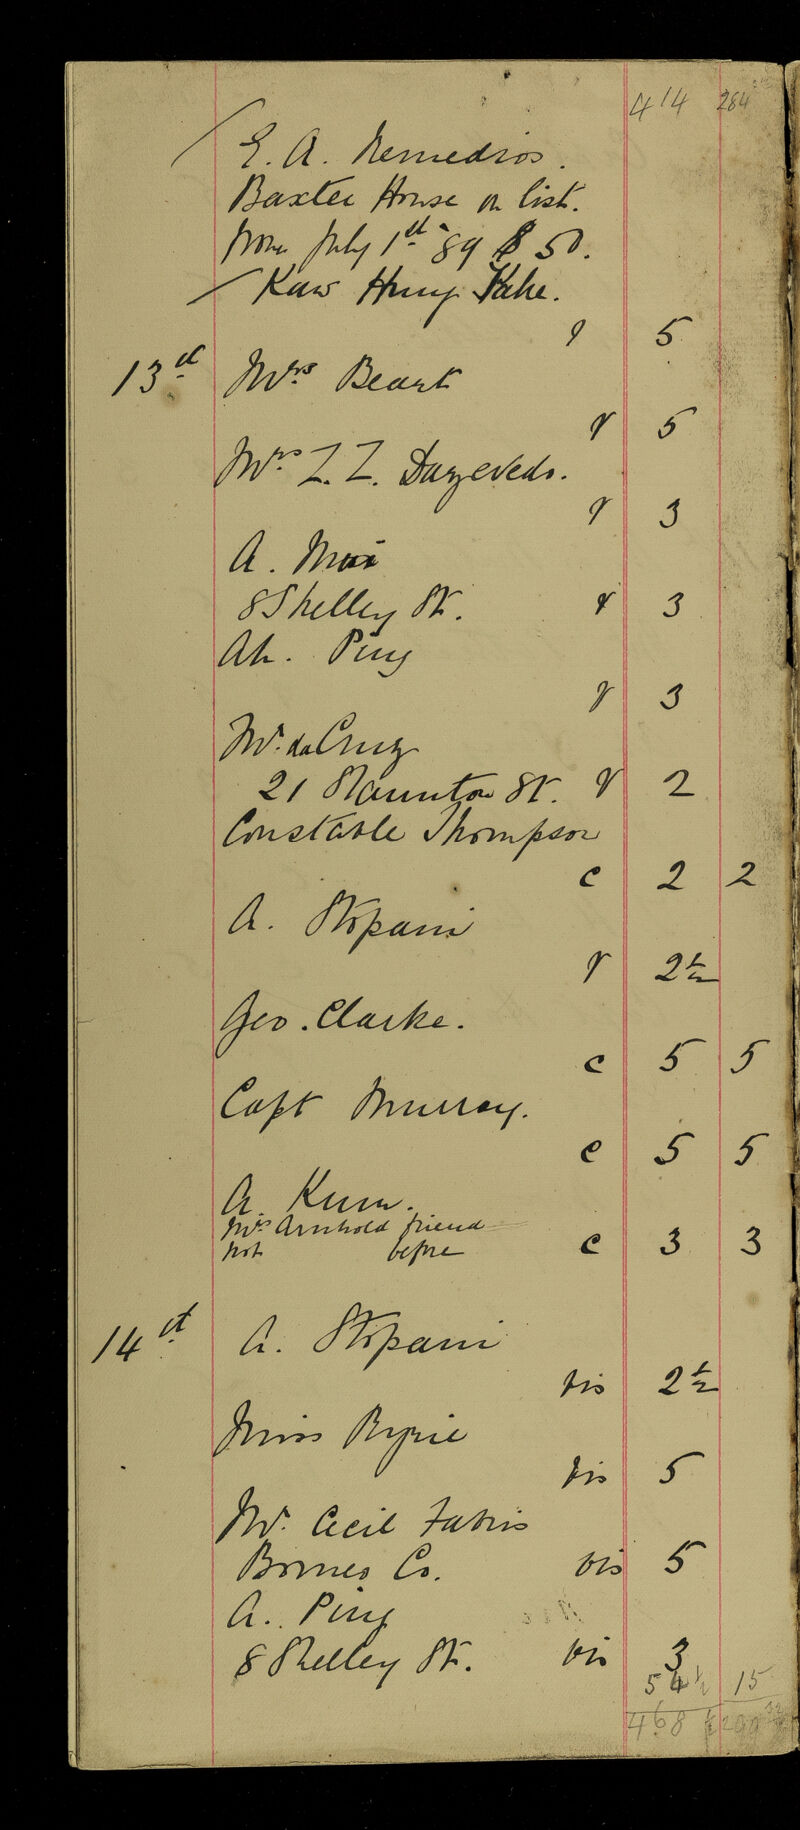 414 284
E. A. Remedios.
Baxter House on list.
from July 1st 89 $50.
Kaw Hung Kahe.
v 5
13th Mrs Beart
v 5
Mrs Z. Z. Dazevedo.
v 3
A. Moi
8 Shelley St. v 3
Ah. Ping
v 3
Mr. da Cruz
21 Staunton St. v 2
Constable Thompson
c 2 2
A. Stopani
v 2½
Geo. Clarke.
c 5 5
Capt Murray.
c 5 5
A. Kum.
Mrs Arnhold friend
not before c 3 3
14th A. Stopani
vis 2½
Miss Ryrie
vis 5
Mr. Cecil Fabris
Borneo Co. vis 5
A. Ping
8 Shelley St. vis 3
54½ 15
468½ 299